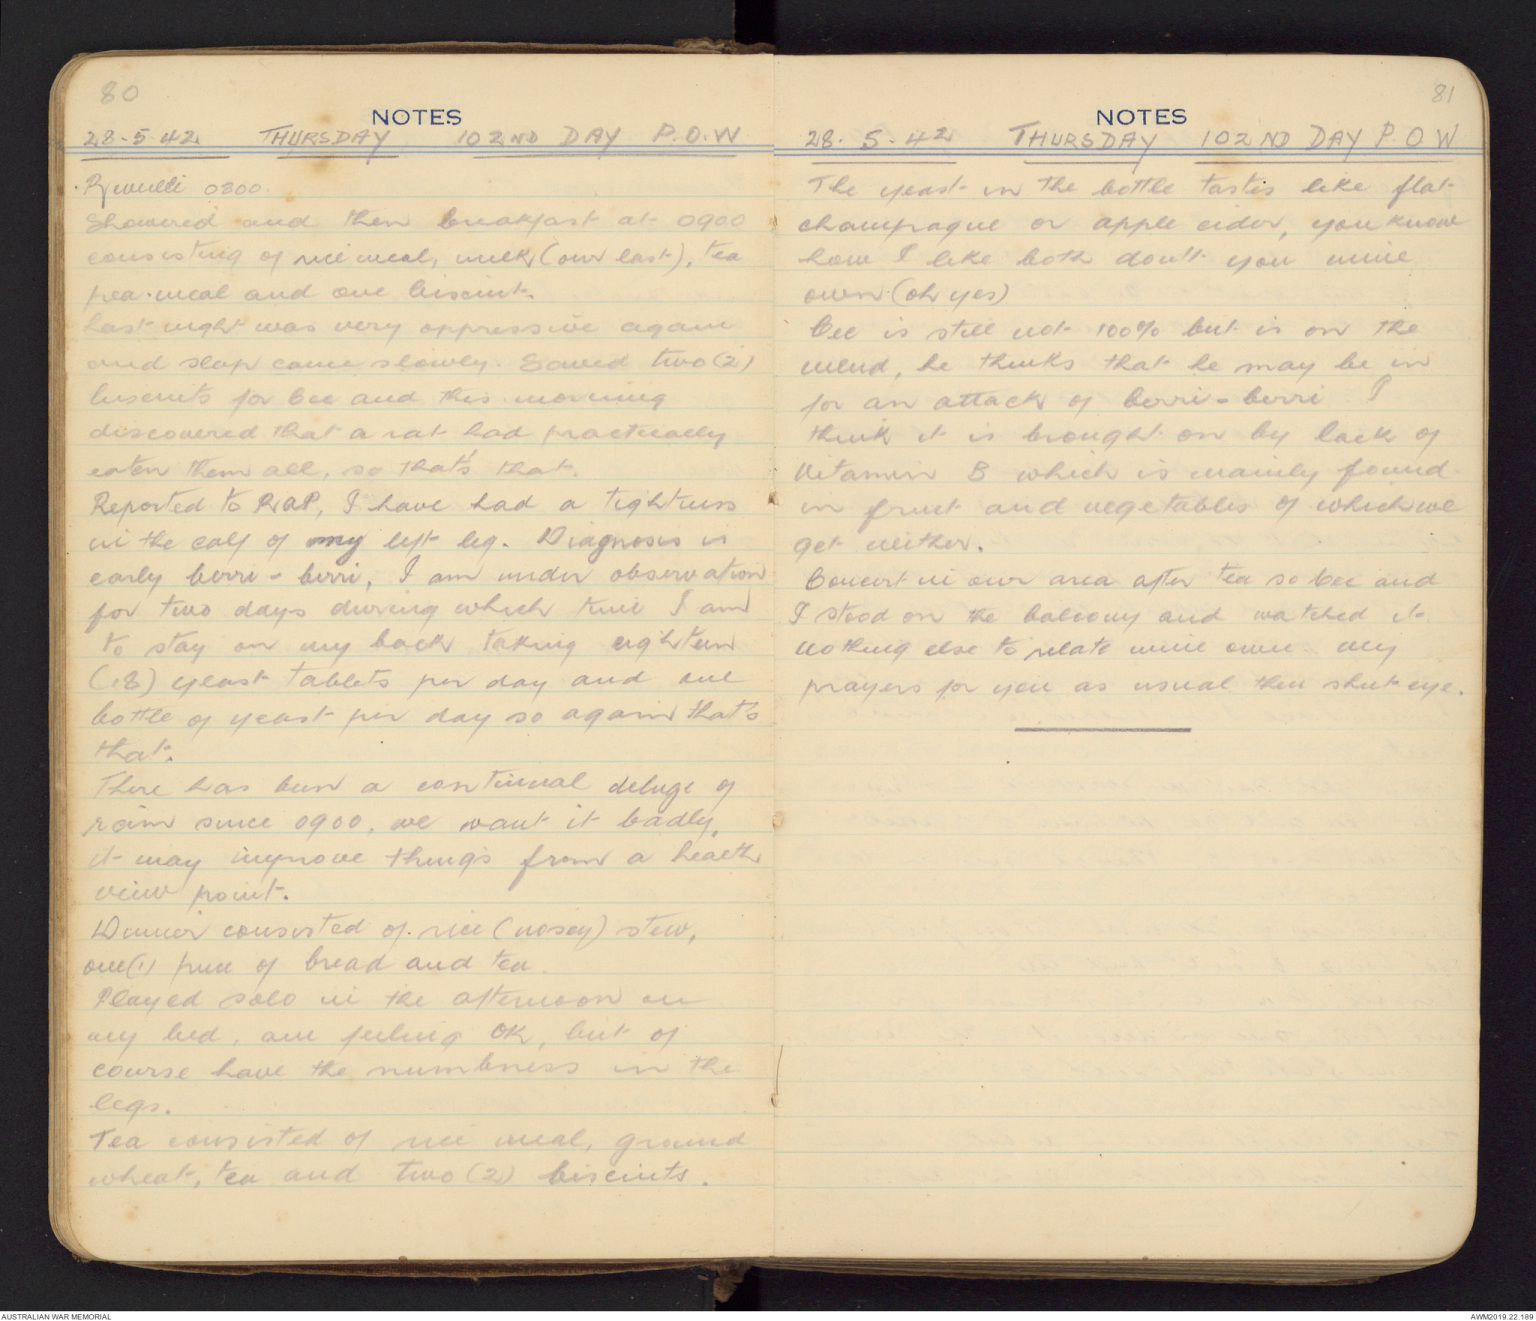 80
NOTES
28-5-42 THURSDAY 102ND DAY P.O.W
Rjveille 0800.
Showered and then breakfast at 0900
consisting of rice meal, milk (our last), tea
pea-meal and one biscuit.
Last night was very oppressive again
and sleep came slowly. Saved two (2)
biscuits for Cec and this morning
discovered that a rat had practically
eaten them all, so that's that.
Reported to RAP, I have had a tightness
in the calf of my left leg. Diagnosis is
early berri-berri, I am under observation
for two days during which time I am
to stay on my back taking eighteen
(18) yeast tablets per day and one
bottle of yeast per day so again that's
that.
There has been a continual deluge of
rain since 0900, we want it badly,
it may improve things from a health
view point.
Dinner consisted of rice (nosey) stew,
one (1) piece of bread and tea.
Played solo in the afternoon on
my bed, am feeling OK, but of
course have the numbness in the
legs.
Tea consisted of rice meal, ground
wheat, tea and two (2) biscuits.
81
NOTES
28.5.42 THURSDAY 102ND DAY P O W
The yeast in the bottle tastes like flat
champagne or apple cider, you know
how I like both don't you mine
own (oh yes)
Cec is still not 100% but is on the
mend, he thinks that he may be in
for an attack of berri-berri I
think it is brought on by lack of
Vitamin B which is mainly found
in fruit and vegetables of which we
get neither.
Concert in our area after tea so Cec and
I stood on the balcony and watched it.
Nothing else to relate mine own my
prayers for you as usual then shut eye.
AUSTRALIAN WAR MEMORIAL
AWM2019.22.189